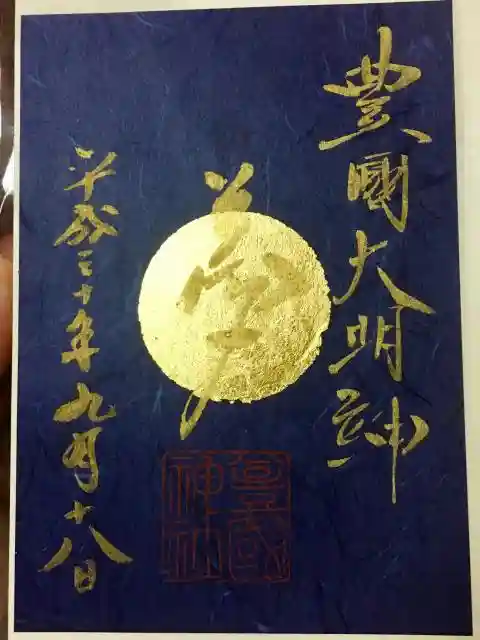 豊國大明神
夢
平成三十年九月十八日
豊國神社